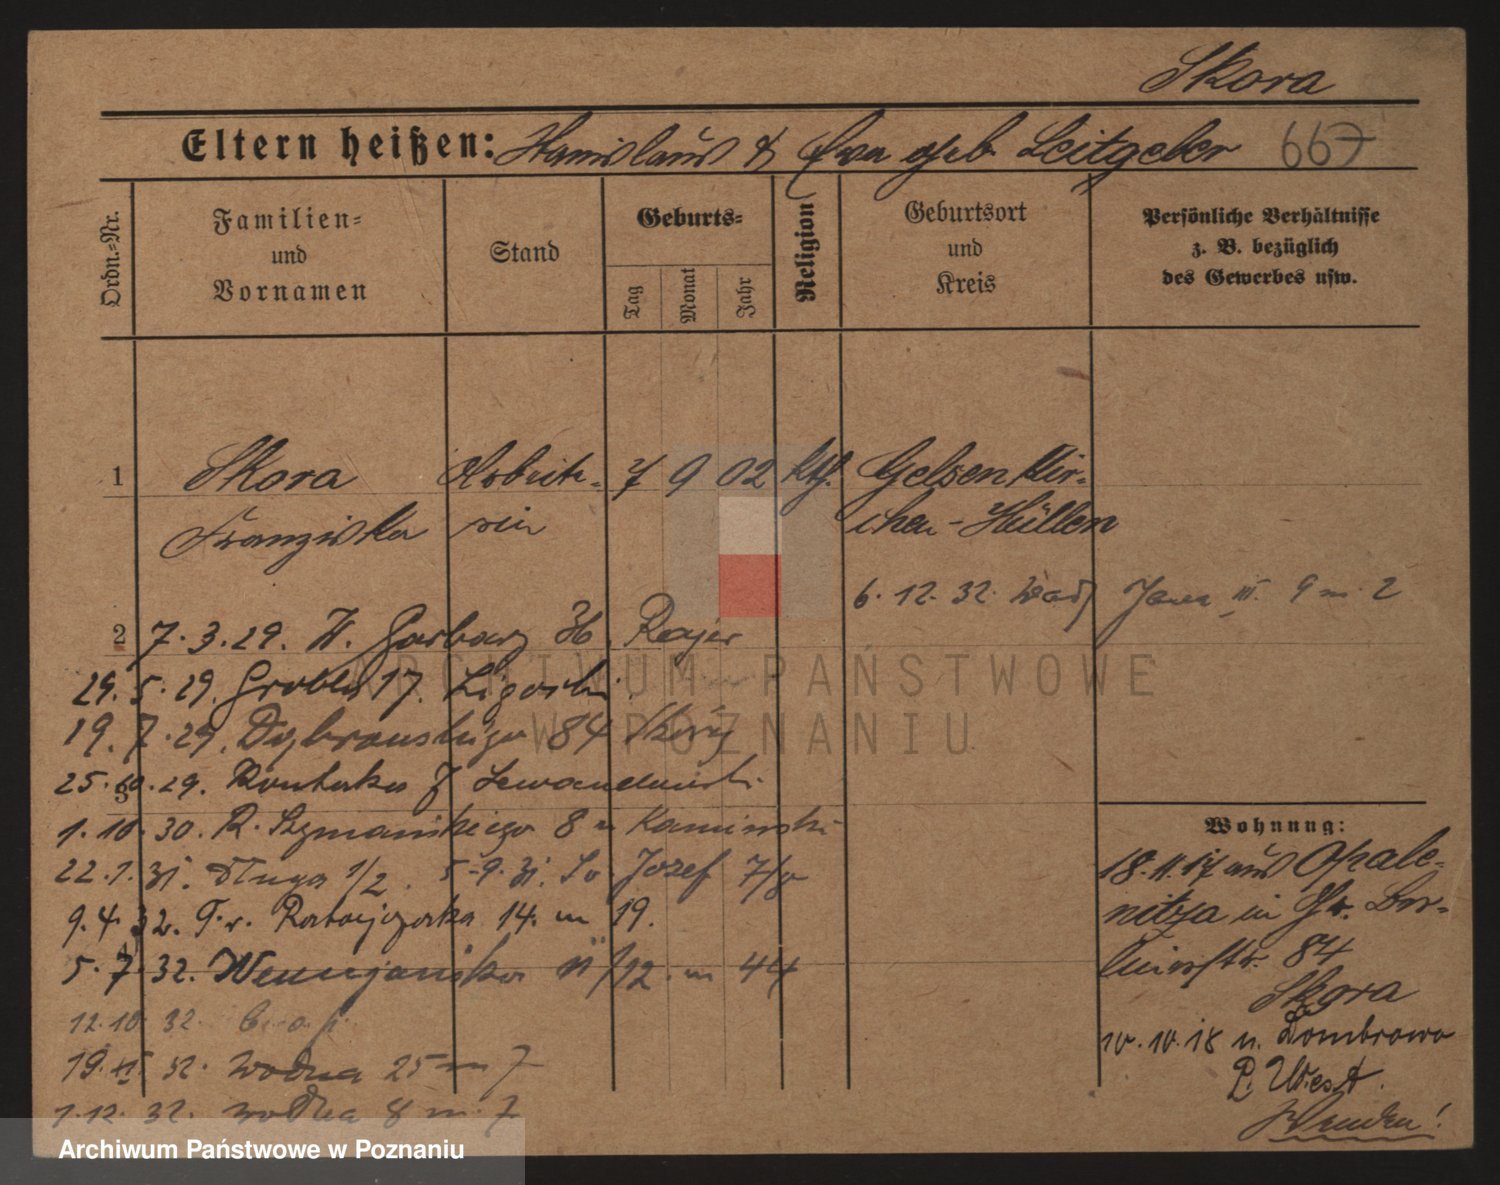 Skora
Eltern heißen: Stanislaus & Ewa geb. Leitgeber 667
Ordn.-Nr.
Familien-
und
Vornamen
Stand
Geburts-
Tag
Monat
Jahr
Religion
Geburtsort
und
Kreis
Persönliche Verhältnisse
z. B. bezüglich
des Gewerbes usw.
1 Skora Arbeite- 7 9 02 kth. Gelsenkir-
Franziska rin chen-Hüllen
6. 12. 32. Jana III. 9 m. 2
2 7. 3. 29. W. Garbary 36. Rajer
29. 5. 29. Grobla 17.
19. 7. 29. Dąbrowskiego 84 Skóra
25. 10. 29. 7 Lewandowski
3
1. 10. 30. R. Szymańskiego 8 Kaminski
22. 1. 31. Długa 1/2. 5. 9. 31. Józef 7/8
9. 4. 32. Ratajczaka 14. m 19.
5. 7. 32. 11/12. m 44
4
12. 10. 32.
19. XI 32. Wodna 25 m 7
1. 12. 32. Wodna 8 m. 7
Wohnung:
18. 11. 17 aus Opale-
nitza in Gr. Ber-
linerstr. 84
Skora
10. 10. 18 n. Dombrowo
P. West.
Wenden!
ARCHIWUM PAŃSTWOWE
W POZNANIU
Archiwum Państwowe w Poznaniu